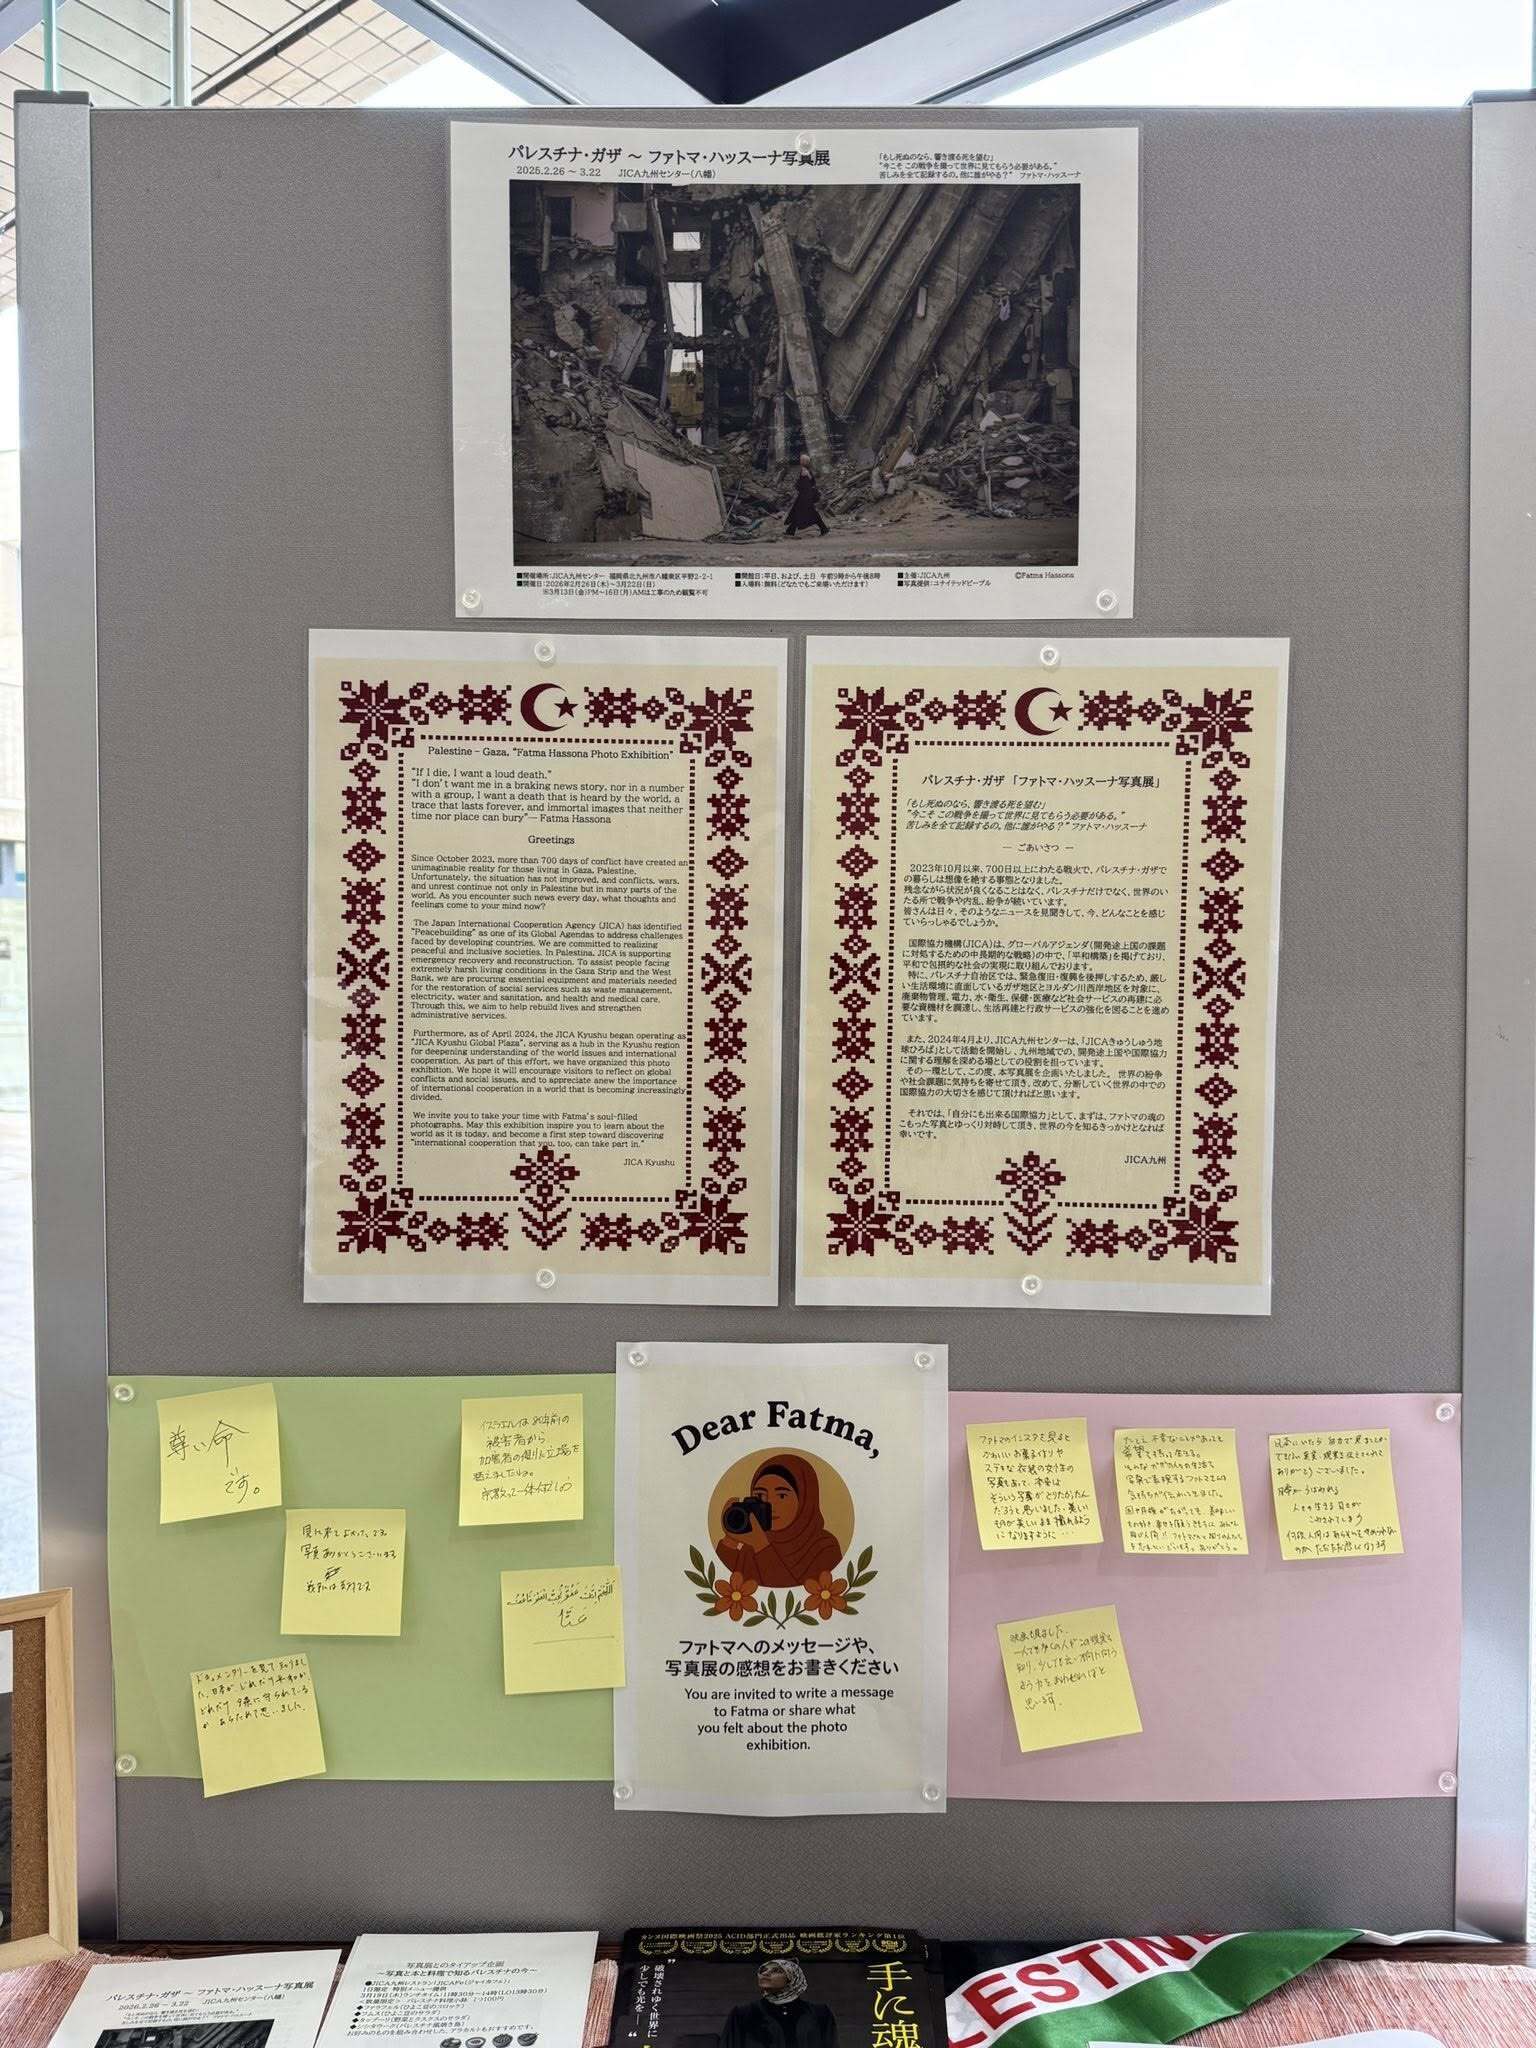 パレスチナ・ガザ ～ ファトマ・ハッスーナ写真展
2025.2.26 ～ 3.22 JICA九州センター(八幡)
「もし死ぬのなら、響き渡る死を望む」
“今こそ この戦争を撮って世界に見てもらう必要がある。”
苦しみを全て記録するの。他に誰がやる？” ファトマ・ハッスーナ
■開催場所:JICA九州センター 福岡県北九州市八幡東区平野2-2-1
■開催日:2026年2月26日(木)～3月22日(日)
※3月13日(金)PM～16日(月)AMは工事のため観覧不可
■開館日:平日、および、土日 午前9時から午後8時
■入場料:無料(どなたでもご来場いただけます)
■主催:JICA九州
■写真提供:ユナイテッドピープル
©Fatma Hassona
Palestine – Gaza, “Fatma Hassona Photo Exhibition”
“If I die, I want a loud death.”
“I don't want me in a braking news story, nor in a number
with a group, I want a death that is heard by the world, a
trace that lasts forever, and immortal images that neither
time nor place can bury”— Fatma Hassona
Greetings
Since October 2023, more than 700 days of conflict have created an
unimaginable reality for those living in Gaza, Palestine.
Unfortunately, the situation has not improved, and conflicts, wars,
and unrest continue not only in Palestine but in many parts of the
world. As you encounter such news every day, what thoughts and
feelings come to your mind now?
The Japan International Cooperation Agency (JICA) has identified
“Peacebuilding” as one of its Global Agendas to address challenges
faced by developing countries. We are committed to realizing
peaceful and inclusive societies. In Palestine, JICA is supporting
emergency recovery and reconstruction. To assist people facing
extremely harsh living conditions in the Gaza Strip and the West
Bank, we are procuring essential equipment and materials needed
for the restoration of social services such as waste management,
electricity, water and sanitation, and health and medical care.
Through this, we aim to help rebuild lives and strengthen
administrative services.
Furthermore, as of April 2024, the JICA Kyushu began operating as
“JICA Kyushu Global Plaza”, serving as a hub in the Kyushu region
for deepening understanding of the world issues and international
cooperation. As part of this effort, we have organized this photo
exhibition. We hope it will encourage visitors to reflect on global
conflicts and social issues, and to appreciate anew the importance
of international cooperation in a world that is becoming increasingly
divided.
We invite you to take your time with Fatma's soul-filled
photographs. May this exhibition inspire you to learn about the
world as it is today, and become a first step toward discovering
“international cooperation that you, too, can take part in.”
JICA Kyushu
パレスチナ・ガザ 「ファトマ・ハッスーナ写真展」
「もし死ぬのなら、響き渡る死を望む」
“今こそ この戦争を撮って世界に見てもらう必要がある。”
苦しみを全て記録するの。他に誰がやる？” ファトマ・ハッスーナ
― ごあいさつ ―
2023年10月以来、700日以上にわたる戦火で、パレスチナ・ガザで
の暮らしは想像を絶する事態となりました。
残念ながら状況が良くなることはなく、パレスチナだけでなく、世界のい
たる所で戦争や内乱、紛争が続いています。
皆さんは日々、そのようなニュースを見聞きして、今、どんなことを感じ
ていらっしゃるでしょうか。
国際協力機構(JICA)は、グローバルアジェンダ(開発途上国の課題
に対処するための中長期的な戦略)の中で、「平和構築」を掲げており、
平和で包摂的な社会の実現に取り組んでおります。
特に、パレスチナ自治区では、緊急復旧・復興を後押しするため、厳し
い生活環境に直面しているガザ地区とヨルダン川西岸地区を対象に、
廃棄物管理、電力、水・衛生、保健・医療など社会サービスの再建に必
要な資機材を調達し、生活再建と行政サービスの強化を図ることを進め
ています。
また、2024年4月より、JICA九州センターは、「JICAきゅうしゅう地
球ひろば」として活動を開始し、九州地域での、開発途上国や国際協力
に関する理解を深める場としての役割を担っています。
その一環として、この度、本写真展を企画いたしました。 世界の紛争
や社会課題に気持ちを寄せて頂き、改めて、分断していく世界の中での
国際協力の大切さを感じて頂ければと思います。
それでは、「自分にも出来る国際協力」として、まずは、ファトマの魂の
こもった写真とゆっくり対峙して頂き、世界の今を知るきっかけとなれば
幸いです。
JICA九州
尊い命
です。
見に来てよかったです。
写真ありがとうございます
戦争には反対です
イスラエルは80年前の
被害者から
加害者の側に立場を
替えましたね。
宗教って一体何だろう
ドキュメンタリーを見て来ました
た。日本が、どれだけ平和か
どれだけ
か あらためて思いました。
Dear Fatma,
ファトマへのメッセージや、
写真展の感想をお書きください
You are invited to write a message
to Fatma or share what
you felt about the photo
exhibition.
ファトマのインスタを見ると
かわいいお菓子作りや
ステキな衣装の女の子の
写真もあって、本来は
そういう写真がとりたかったん
だろうと思いました。美しい
ものが美しいまま撮れるよう
になりますように…
希望を持って生きる。
写真で表現するファトマさんの
気持ちが伝わってきました。
ありがとう。
ありがとうございました。
映画も見ました。
思います。
パレスチナ・ガザ ～ ファトマ・ハッスーナ写真展
2026.2.26 ～ 3.22 JICA九州センター(八幡)
写真展とのタイアップ企画
～写真と本と料理で知るパレスチナの今～
●JICA九州レストラン「JICAFe(ジャイカフェ)」
1日限定 特別メニュー提供
3月19日(木)ランチタイム 11時30分～14時(LO13時30分)
◆ファラフェル(ひよこ豆のコロッケ)
◆フムス(ひよこ豆のサラダ)
◆タッブーリ(野菜とクスクスのサラダ)
カンヌ国際映画祭2025 ACID部門正式出品 映画批評家ランキング第1位
“破壊されゆく世界に
少しでも光を―”
手に魂
LESTINE